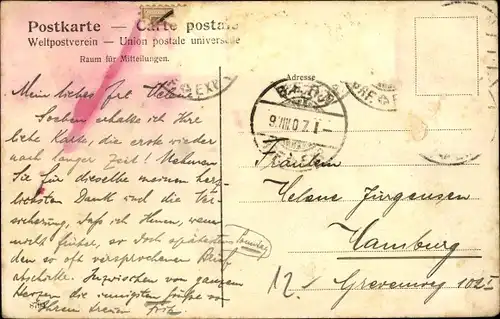 Postkarte — Carte postale
Weltpostverein — Union postale universelle
Raum für Mitteilungen.
Adresse
Mein liebes Frl. Helene!
Soeben erhalte ich Ihre
liebe Karte, die erste wieder
nach langer Zeit! Nehmen
Sie für dieselbe meinen herz-
lichsten Dank und die Ver-
sicherung, dass ich Ihnen, wenn
nicht früher, so doch spätestens Sonntag
den so oft versprochenen Brief
abschicke. Inzwischen von ganzem
Herzen die innigsten Grüsse von
Ihrem treuen Fritz
Fräulein
Helene Jürgensen
Hamburg
Grevenweg 102